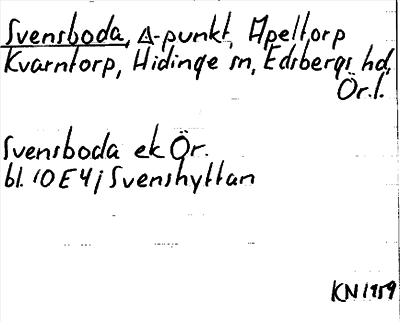 Svensboda, △-punkt, Apeltorp
Kvarntorp, Hidinge sn, Edsbergs hd,
Ör.l.
Svensboda ek Ör.
bl. 10E4j Svenshyttan
KN 1959